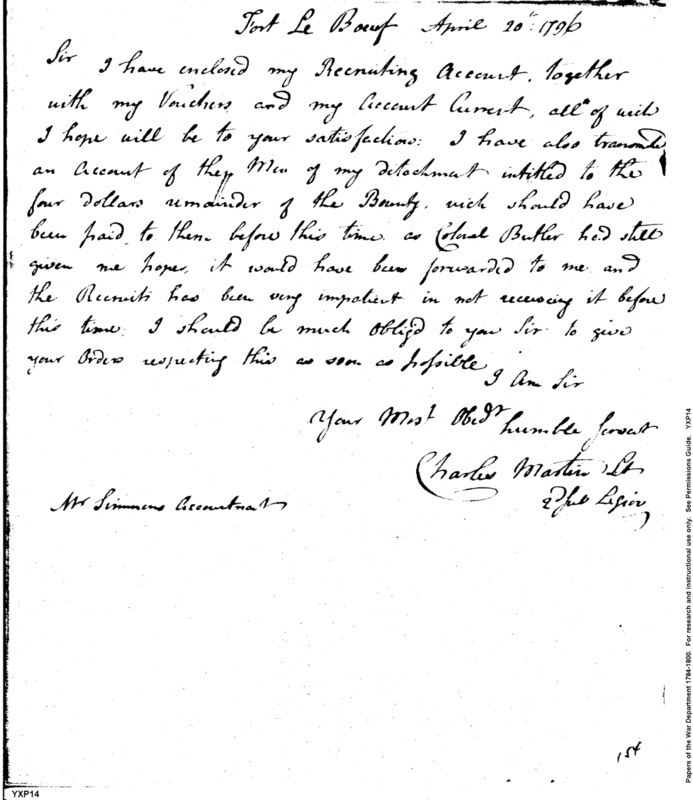 Fort Le Boeuf April 20th 1796
Sir I have enclosed my Recruiting Account, together
with my Vouchers and my Account Current, all of wich
I hope will be to your satisfaction: I have also transmitted
an Account of the Men of my detachment intitled to the
four dollars remainder of the Bounty, wich should have
been paid to them before this time, as Colonel Butler had still
given me hopes, it would have been forwarded to me, and
the Recruits has been very impatient in not receiving it before
this time. I should be much Oblig'd to you Sir to give
your Orders respecting this as soon as possible
I Am Sir
Your Most Obedt humble Servt
Charles Martin Lt
2d Sub Legion
Mr Simmons Accountant
154
YXP14
Papers of the War Department 1784-1800. For research and instructional use only. See Permissions Guide. YXP14